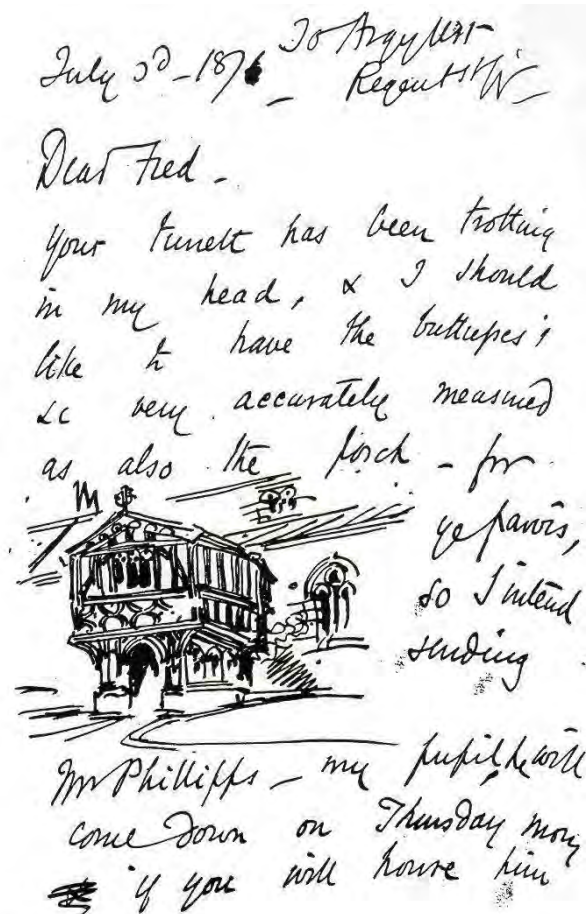 July 3d - 1876 30 Argyll St
Regent St W
Dear Fred -
your turrett has been trotting
in my head, & I should
like to have the buttresses
&c very accurately measured
as also the porch - for
ye parvis,
so I intend
sending
Mr Phillipps - my pupil, he will
come down on Thursday morg
if you will house him